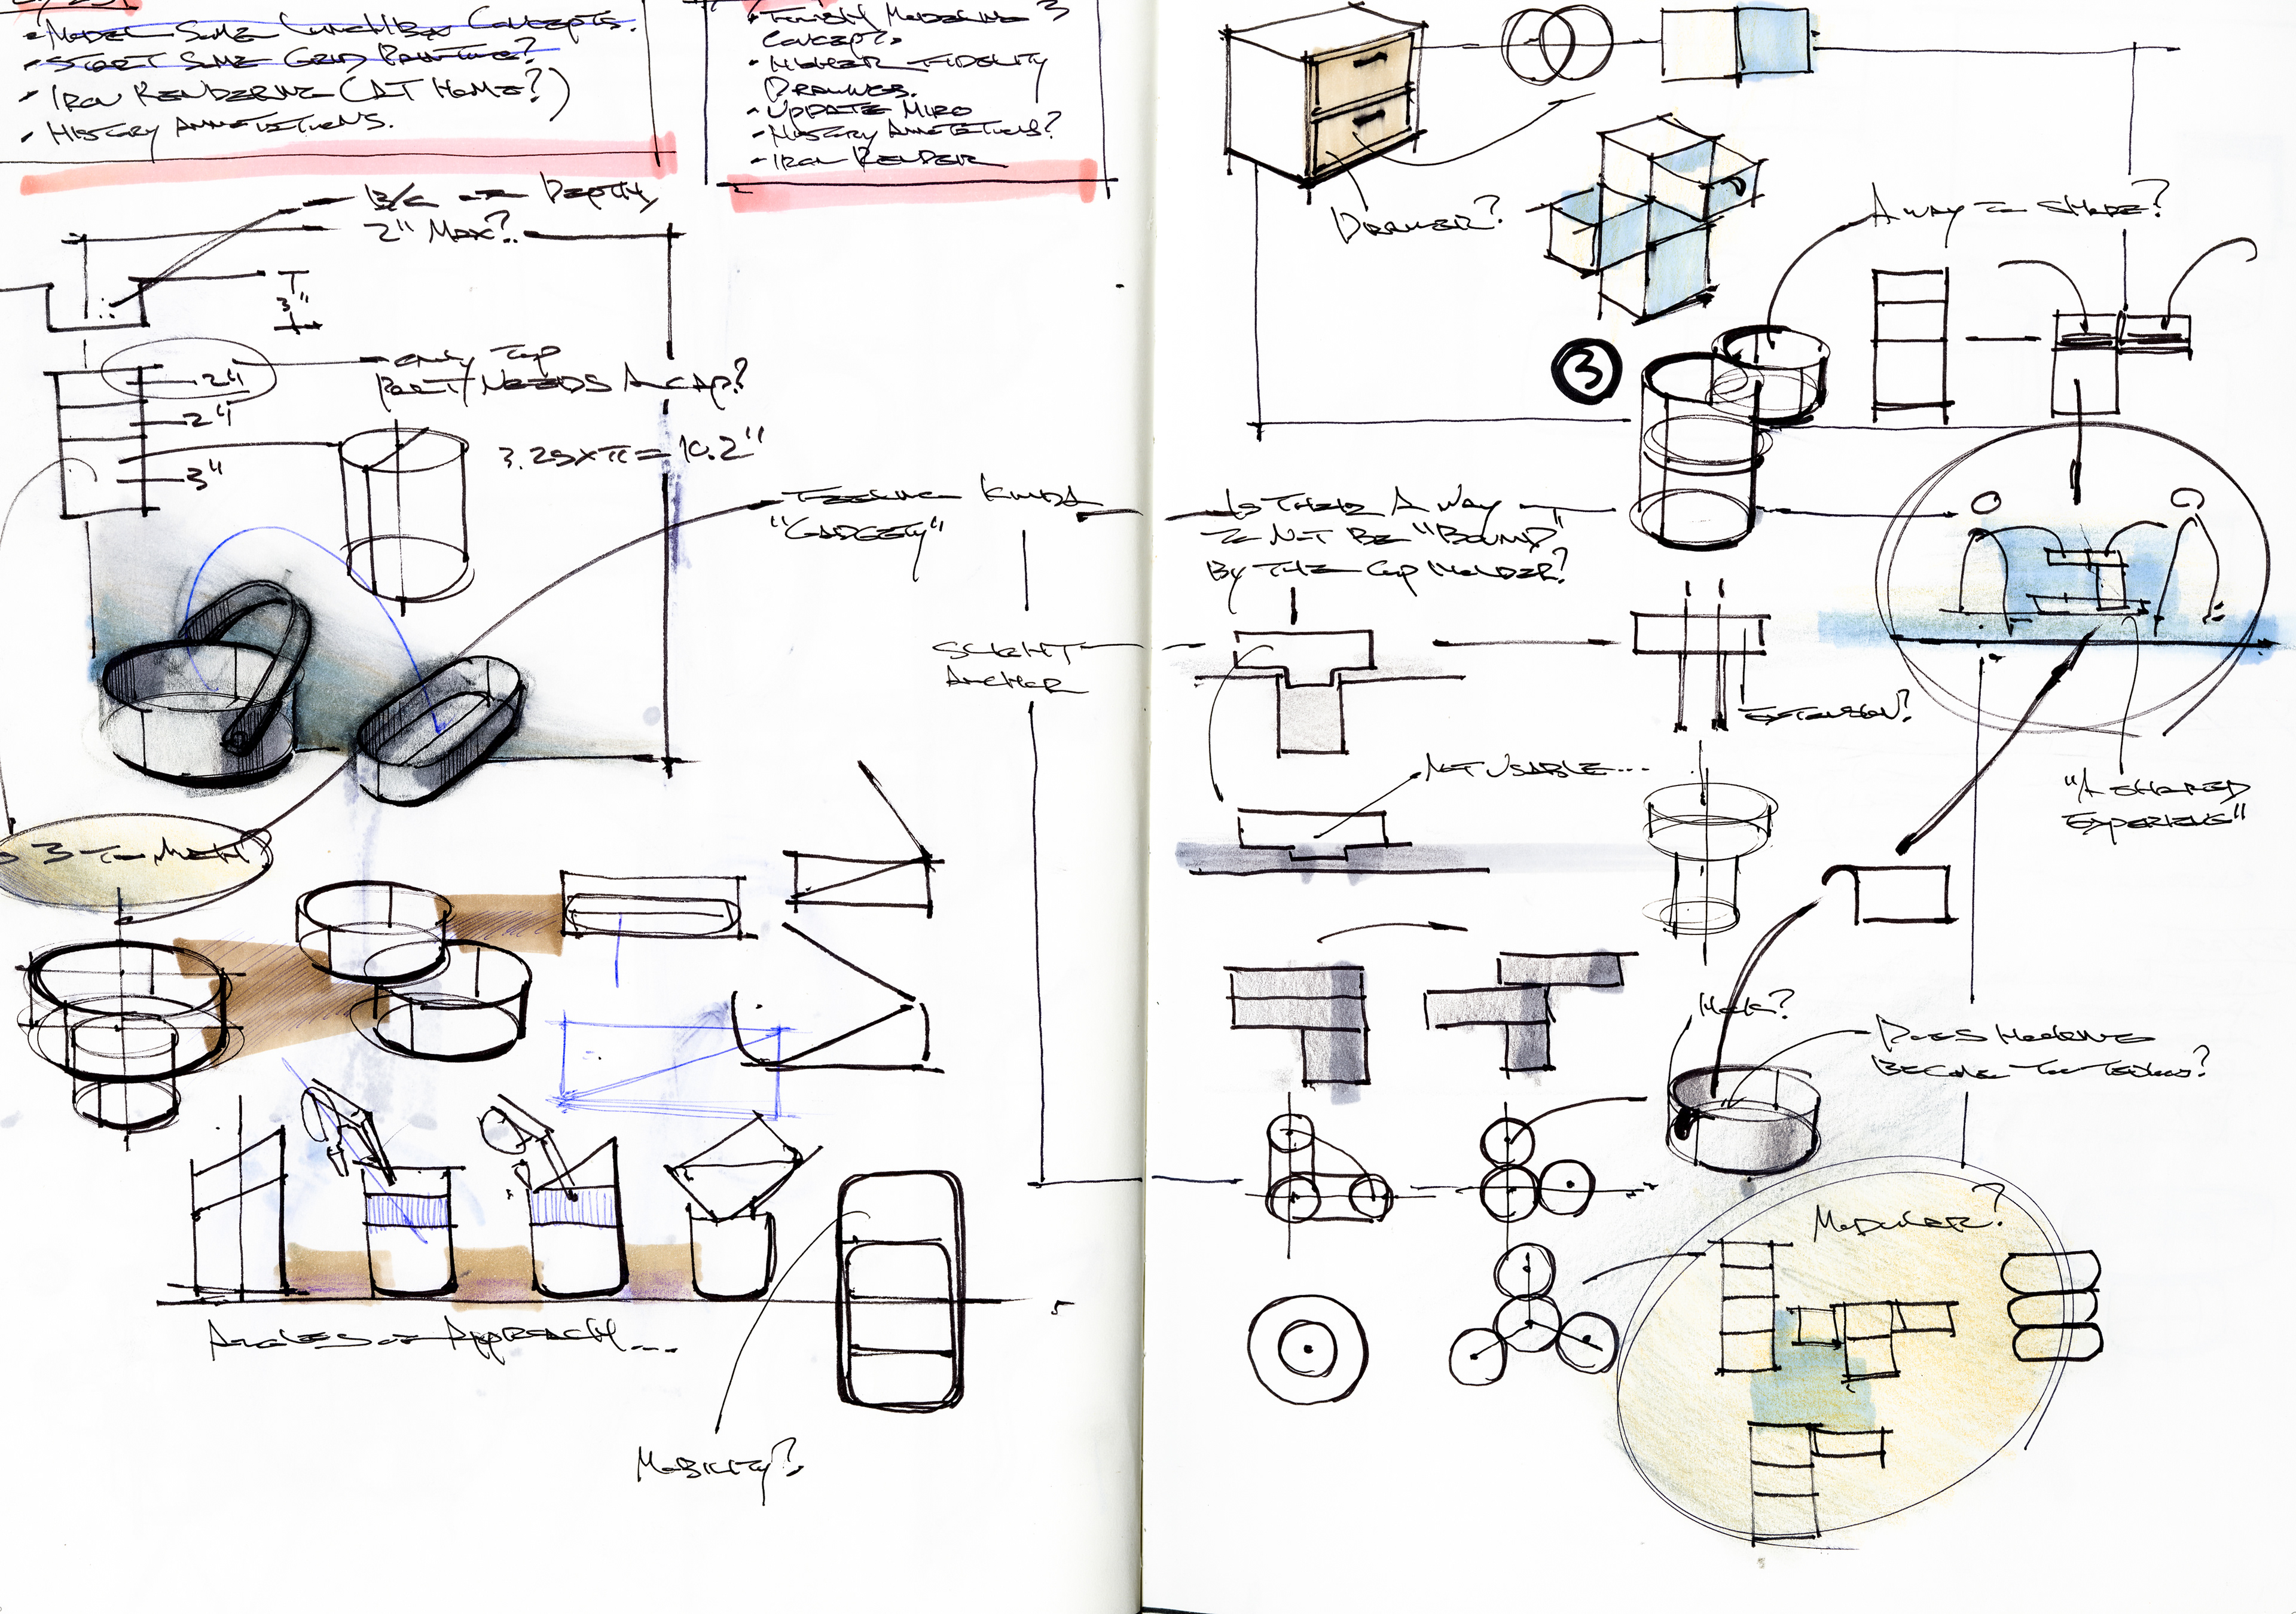 • Model some lunchbox concepts.
• Start some grid painting?
• Iron rendering (at home?)
• History annotations.
• Finish modeling 3
concepts
• Higher fidelity
drawings.
• Update Miro
• History annotations?
• Iron render
B/c of depth,
2" max?
3"
2"
2"
3"
Only top
part needs a cap?
3.25xπ= 10.2"
Feeling kinda
"gadgety"
Slight
anchor
3
Angles of approach...
Mobility?
Drawer?
A way to share?
3
Is their a way
to not be "bound"
by the cup holder?
Extension?
Not usable...
"A shared
experience"
Hook?
Does hooking
become too tedious?
Modular?